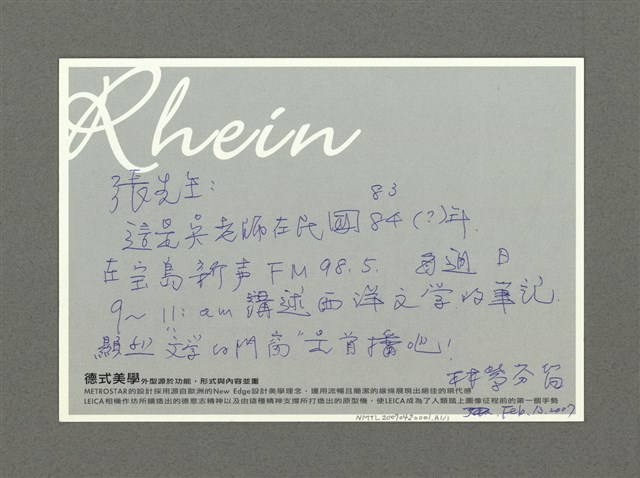 Rhein
張先生:
83
這是吳老師在民國84(?)年
在宝島新声FM 98.5. 每週日
9~11:am 講述西洋文學的筆記.
"文學的門窗"是首播吧!
德式美學 外型源於功能,形式與內容並重
METROSTAR的設計採用源自歐洲的New Edge設計美學理念,運用流暢且簡潔的線條展現出絕佳的現代感
LEICA相機作坊所鑄造出的德意志精神以及由這種精神支撐所打造出的原型機,使LEICA成為了人類踏上圖像征程前的第一個手勢
林瑩芬留
Feb. 13. 2007
NMTL20070420001.A1/1